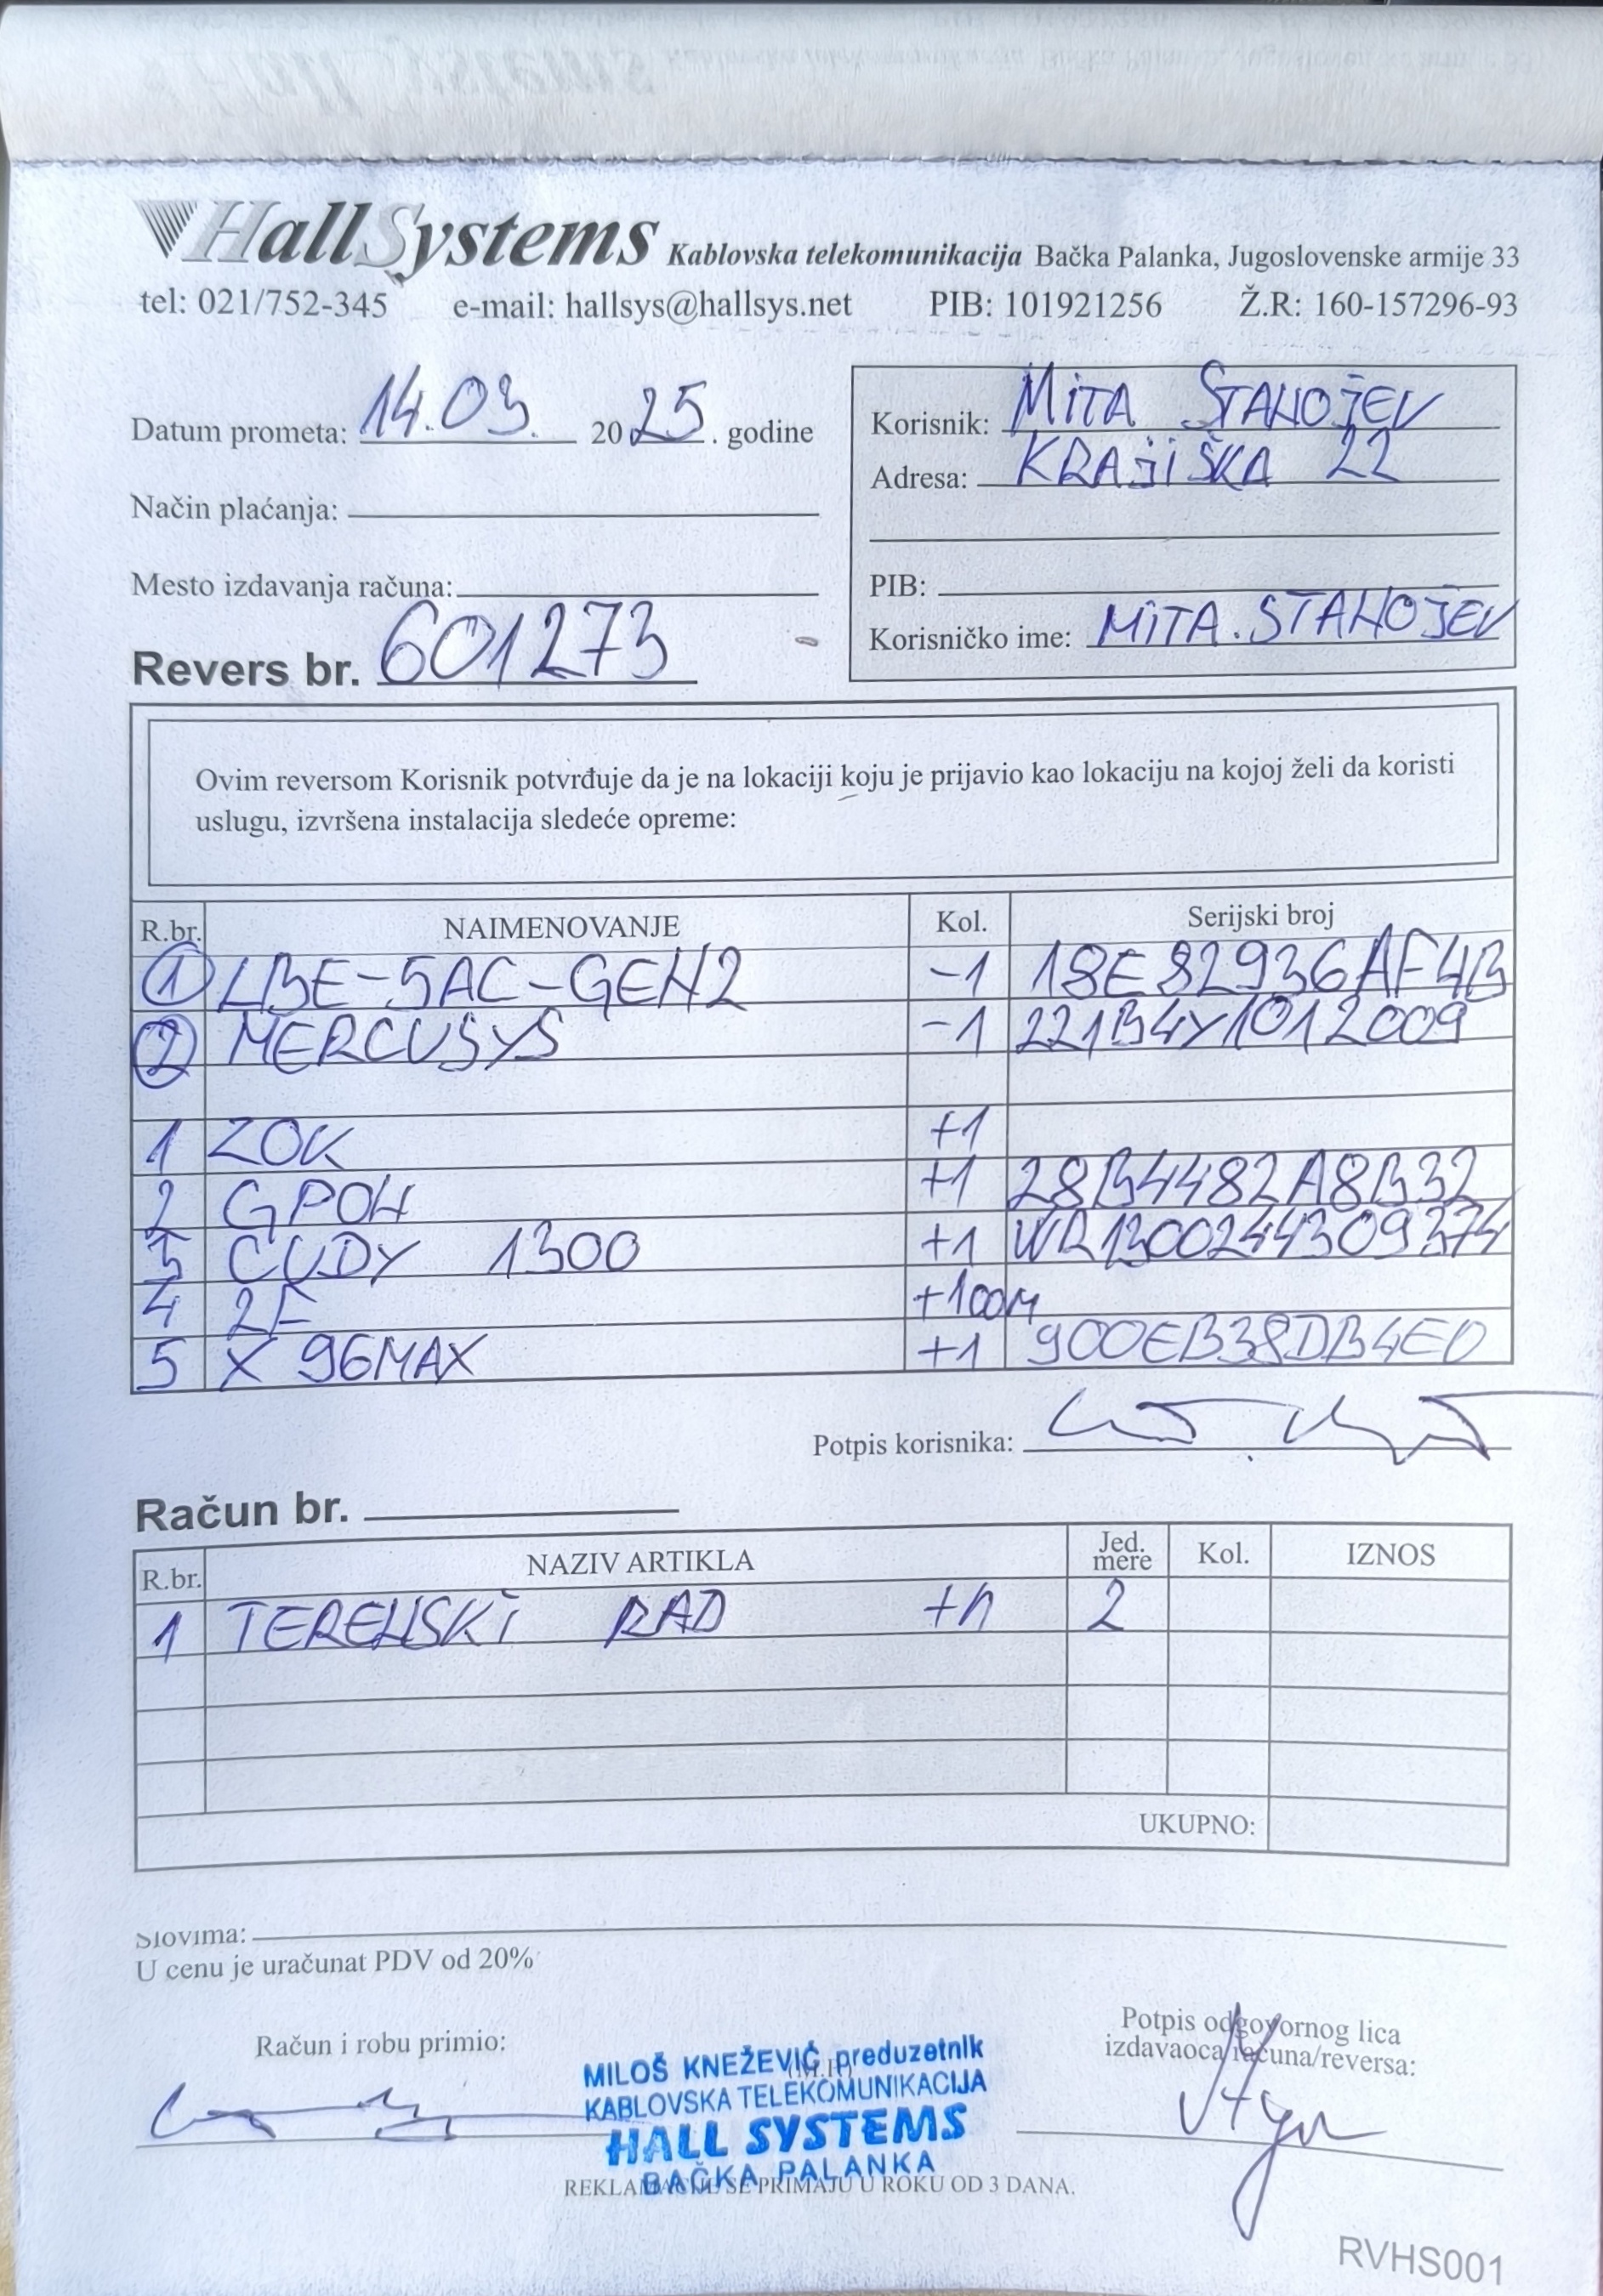 HallSystems Kablovska telekomunikacija Bačka Palanka, Jugoslovenske armije 33
tel: 021/752-345 e-mail: hallsys@hallsys.net PIB: 101921256 Ž.R: 160-157296-93
Datum prometa: 14.03. 2025. godine
Način plaćanja:
Mesto izdavanja računa:
Revers br. 601273
Korisnik: MITA STANOJEV
Adresa: KRAJIŠKA 22
PIB:
Korisničko ime: MITA.STANOJEV
Ovim reversom Korisnik potvrđuje da je na lokaciji koju je prijavio kao lokaciju na kojoj želi da koristi
uslugu, izvršena instalacija sledeće opreme:
R.br. NAIMENOVANJE Kol. Serijski broj
1 LBE-5AC-GEN2 -1 18E82936AF4B
2 MERCUSYS -1 221B4Y1012009
1 ZOK +1
2 GPON +1 28B4482A8B32
3 CUDY 1300 +1 WR1300244309374
4 2F +100M
5 X 96MAX +1 900EB38DB4E0
Potpis korisnika:
Račun br.
R.br. NAZIV ARTIKLA Jed. mere Kol. IZNOS
1 TERENSKI RAD 2
UKUPNO:
Slovima:
U cenu je uračunat PDV od 20%
Račun i robu primio:
(M.P.)
Potpis odgovornog lica
izdavaoca računa/reversa:
MILOŠ KNEŽEVIĆ preduzetnik
KABLOVSKA TELEKOMUNIKACIJA
HALL SYSTEMS
BAČKA PALANKA
REKLAMACIJE SE PRIMAJU U ROKU OD 3 DANA.
RVHS001